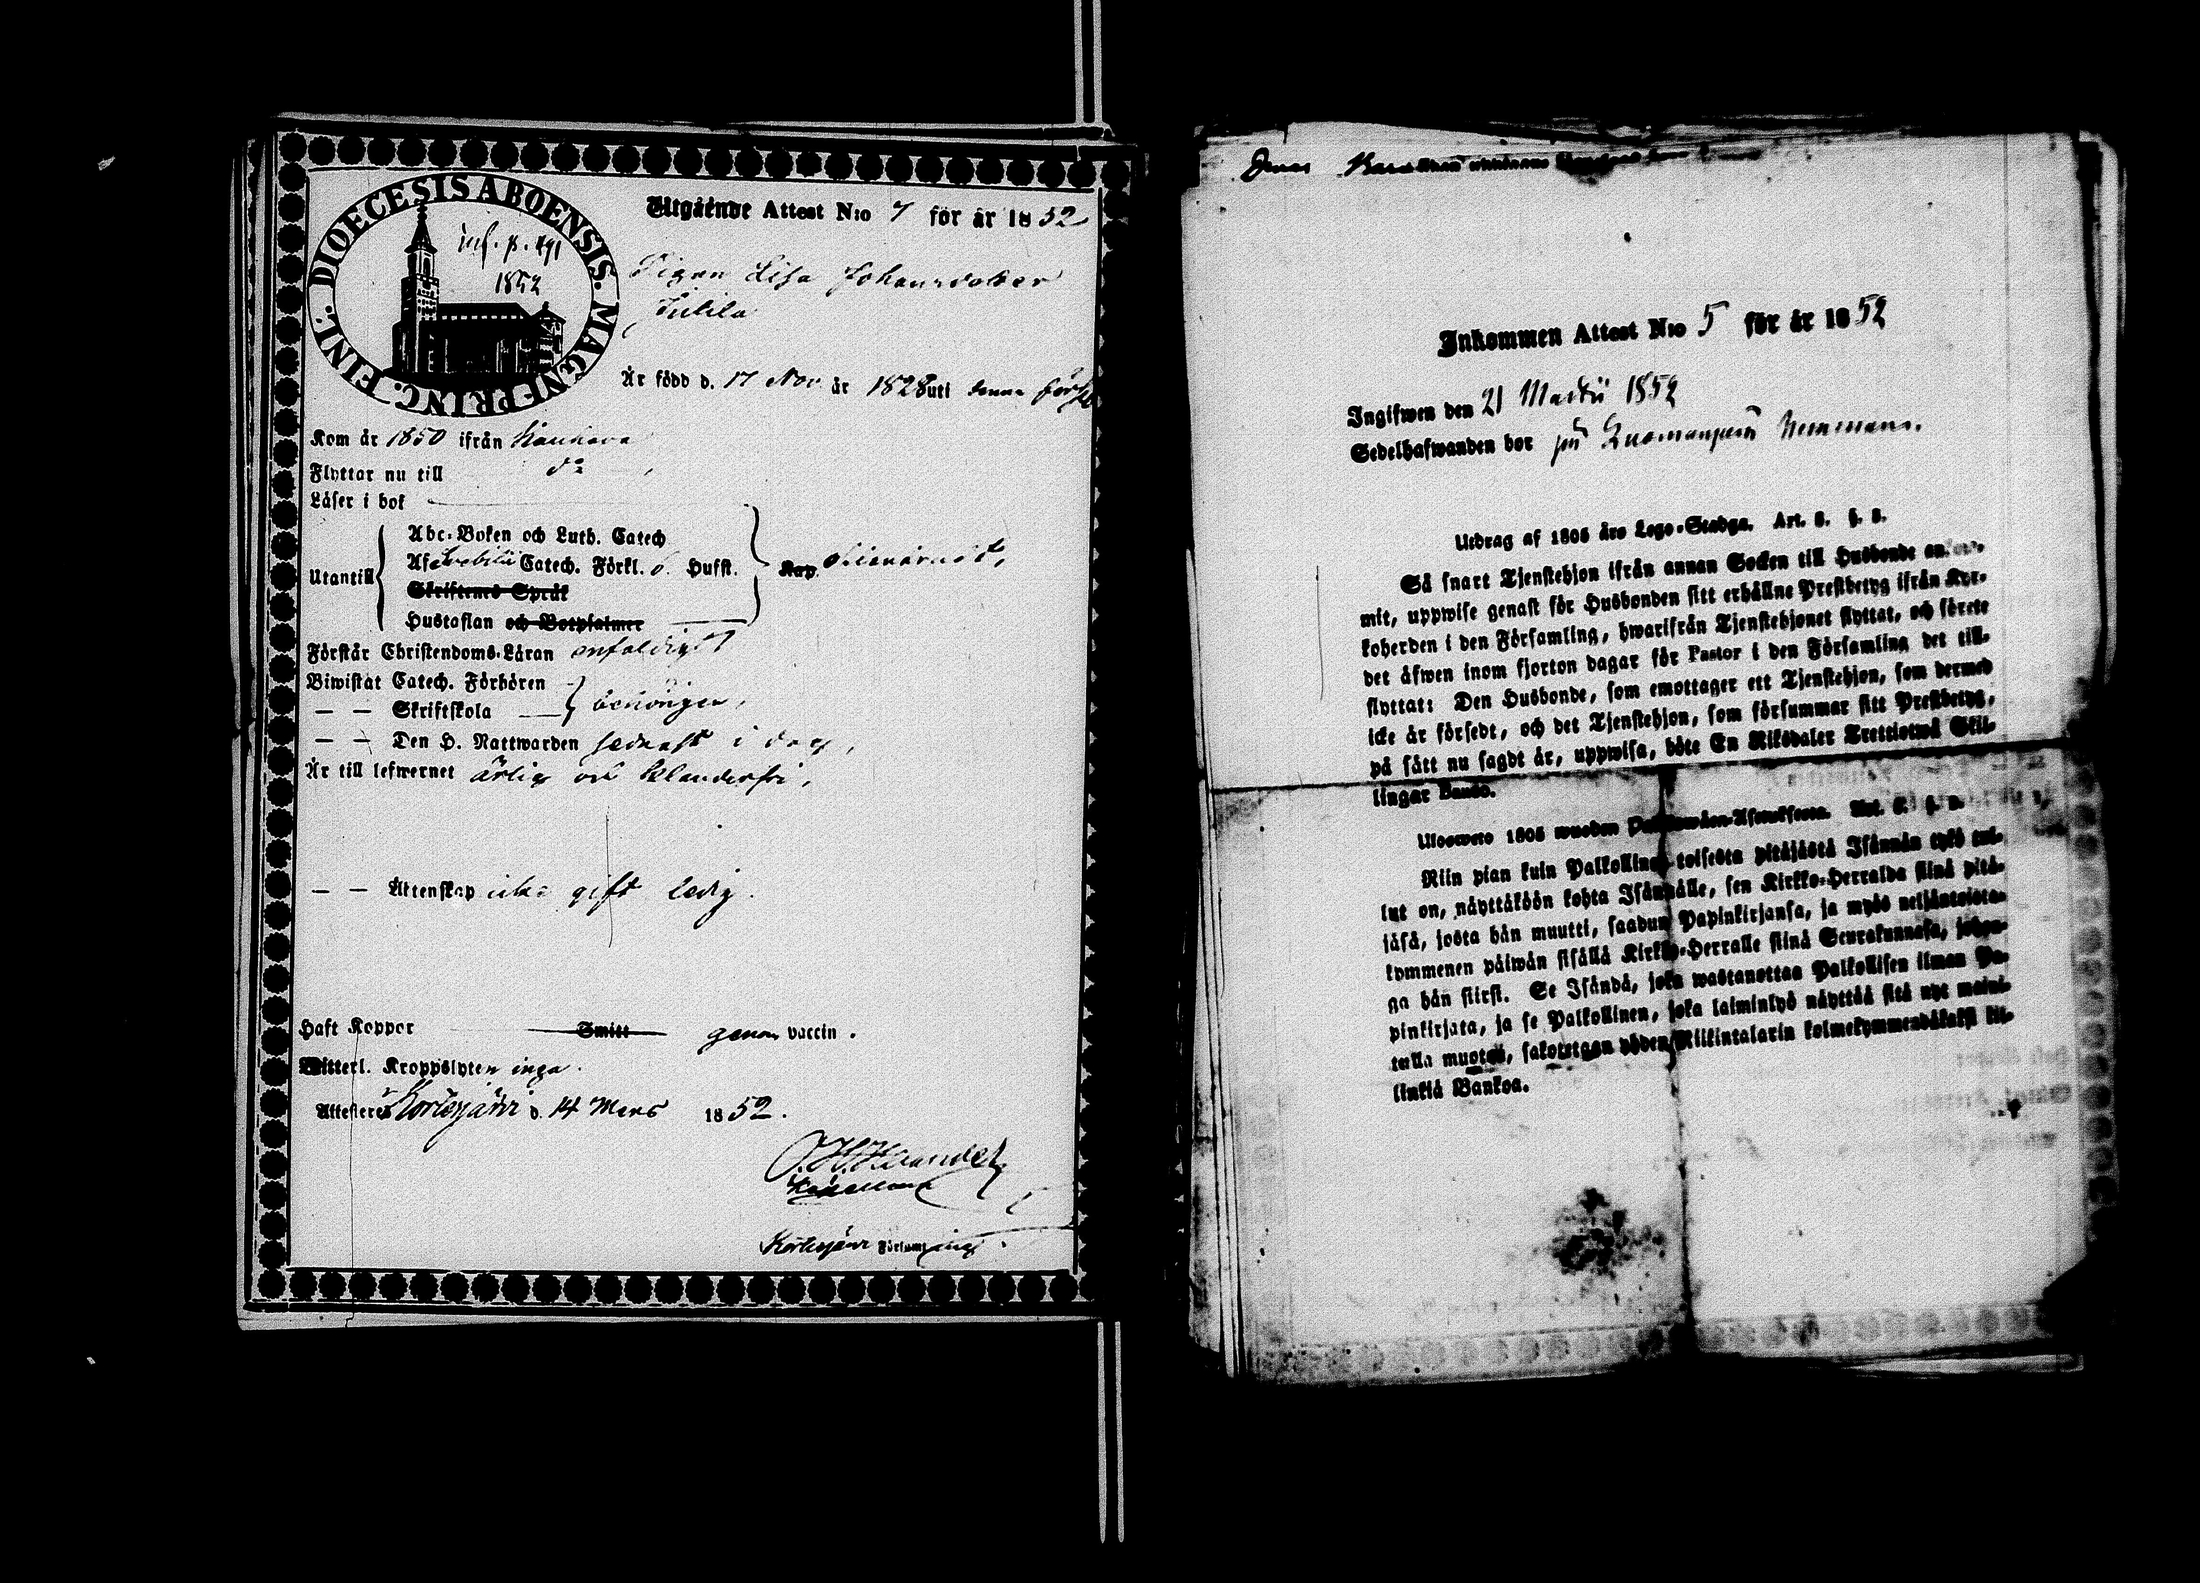 DIOECESIS ABOENSIS. MAGNI PRINC. FINL.
inf. p. 491
1852
Utgående Attest N:o 7 för år 1852
Pigan Lisa Johansdotter
Är född d. 17 Nov. år 1828 uti denna förs
Kom år 1850 ifrån Kauhava
Flyttar nu till do
Läser i bok
Utantill
Abc-Boken och Luth. Catech
Af Svebilii Catech. Förkl. o. Husst.
Skriftenes Språk
Hustaflan och Botpsalmer
Kap.
Förstår Christendoms-Läran enfaldigt
Biwistat Catech. Förhören
— — Skriftskola
behörigen,
— — Den H. Nattwarden sednast i dag,
Är till lefwernet ärlig och klanderfri,
— — Ältenskap icke gift ledig.
Haft Koppor Smitt genom vaccin.
Witterl. Kroppslyten inga.
Attesteras Kortesjärvi d. 14 Mars 1852.
Kortesjärvi Församling.
Jonas
Inkommen Attest N:o 5 för år 1852
Ingifwen den 21 Martii 1852
Sedelhafwanden bor på
Utdrag af 1805 års Lego-Stadga. Art. 8. §. 8.
Så snart Tjenstehjon ifrån annan Socken till Husbonde
mit, uppwise genast för Husbonden sitt erhållne Prestbetyg ifrån Kyr-
koherden i den Församling, hwarifrån Tjenstehjonet flyttat, och förete
det äfwen inom fjorton dagar för Pastor i den Församling det till-
flyttat: Den Husbonde, som emottager ett Tjenstehjon, som dermed
icke är försedt, och det Tjenstehjon, som försummar sitt Prestbetyg,
på sätt nu sagdt är, uppwisa, böte En Riksdaler Trettiotwå Skil-
lingar Banco.
Uloswето 1805 wuoden
Niin pian kuin Palkollinen toisesta pitäjästä Isännän tykö tul-
lut on, näyttäköön kohta Isännälle, sen Kirkko-Herralda siinä pitä-
jäsä, josta hän muutti, saadun Papinkirjansa, ja myös neljäntoista-
kymmenen päiwän sisällä Kirkko-Herralle siinä Seurakunnasa, johon-
ga hän siirsi. Se Isändä, joka wastanottaa Palkollisen ilman Pa-
pinkirjata, ja se Palkollinen, joka laiminlyö näyttää sitä nyt maini-
tulla muotoa, sakotetaan yhden Riikintalarin kolmekymmendäkaksi kil-
linkiä Bankoa.